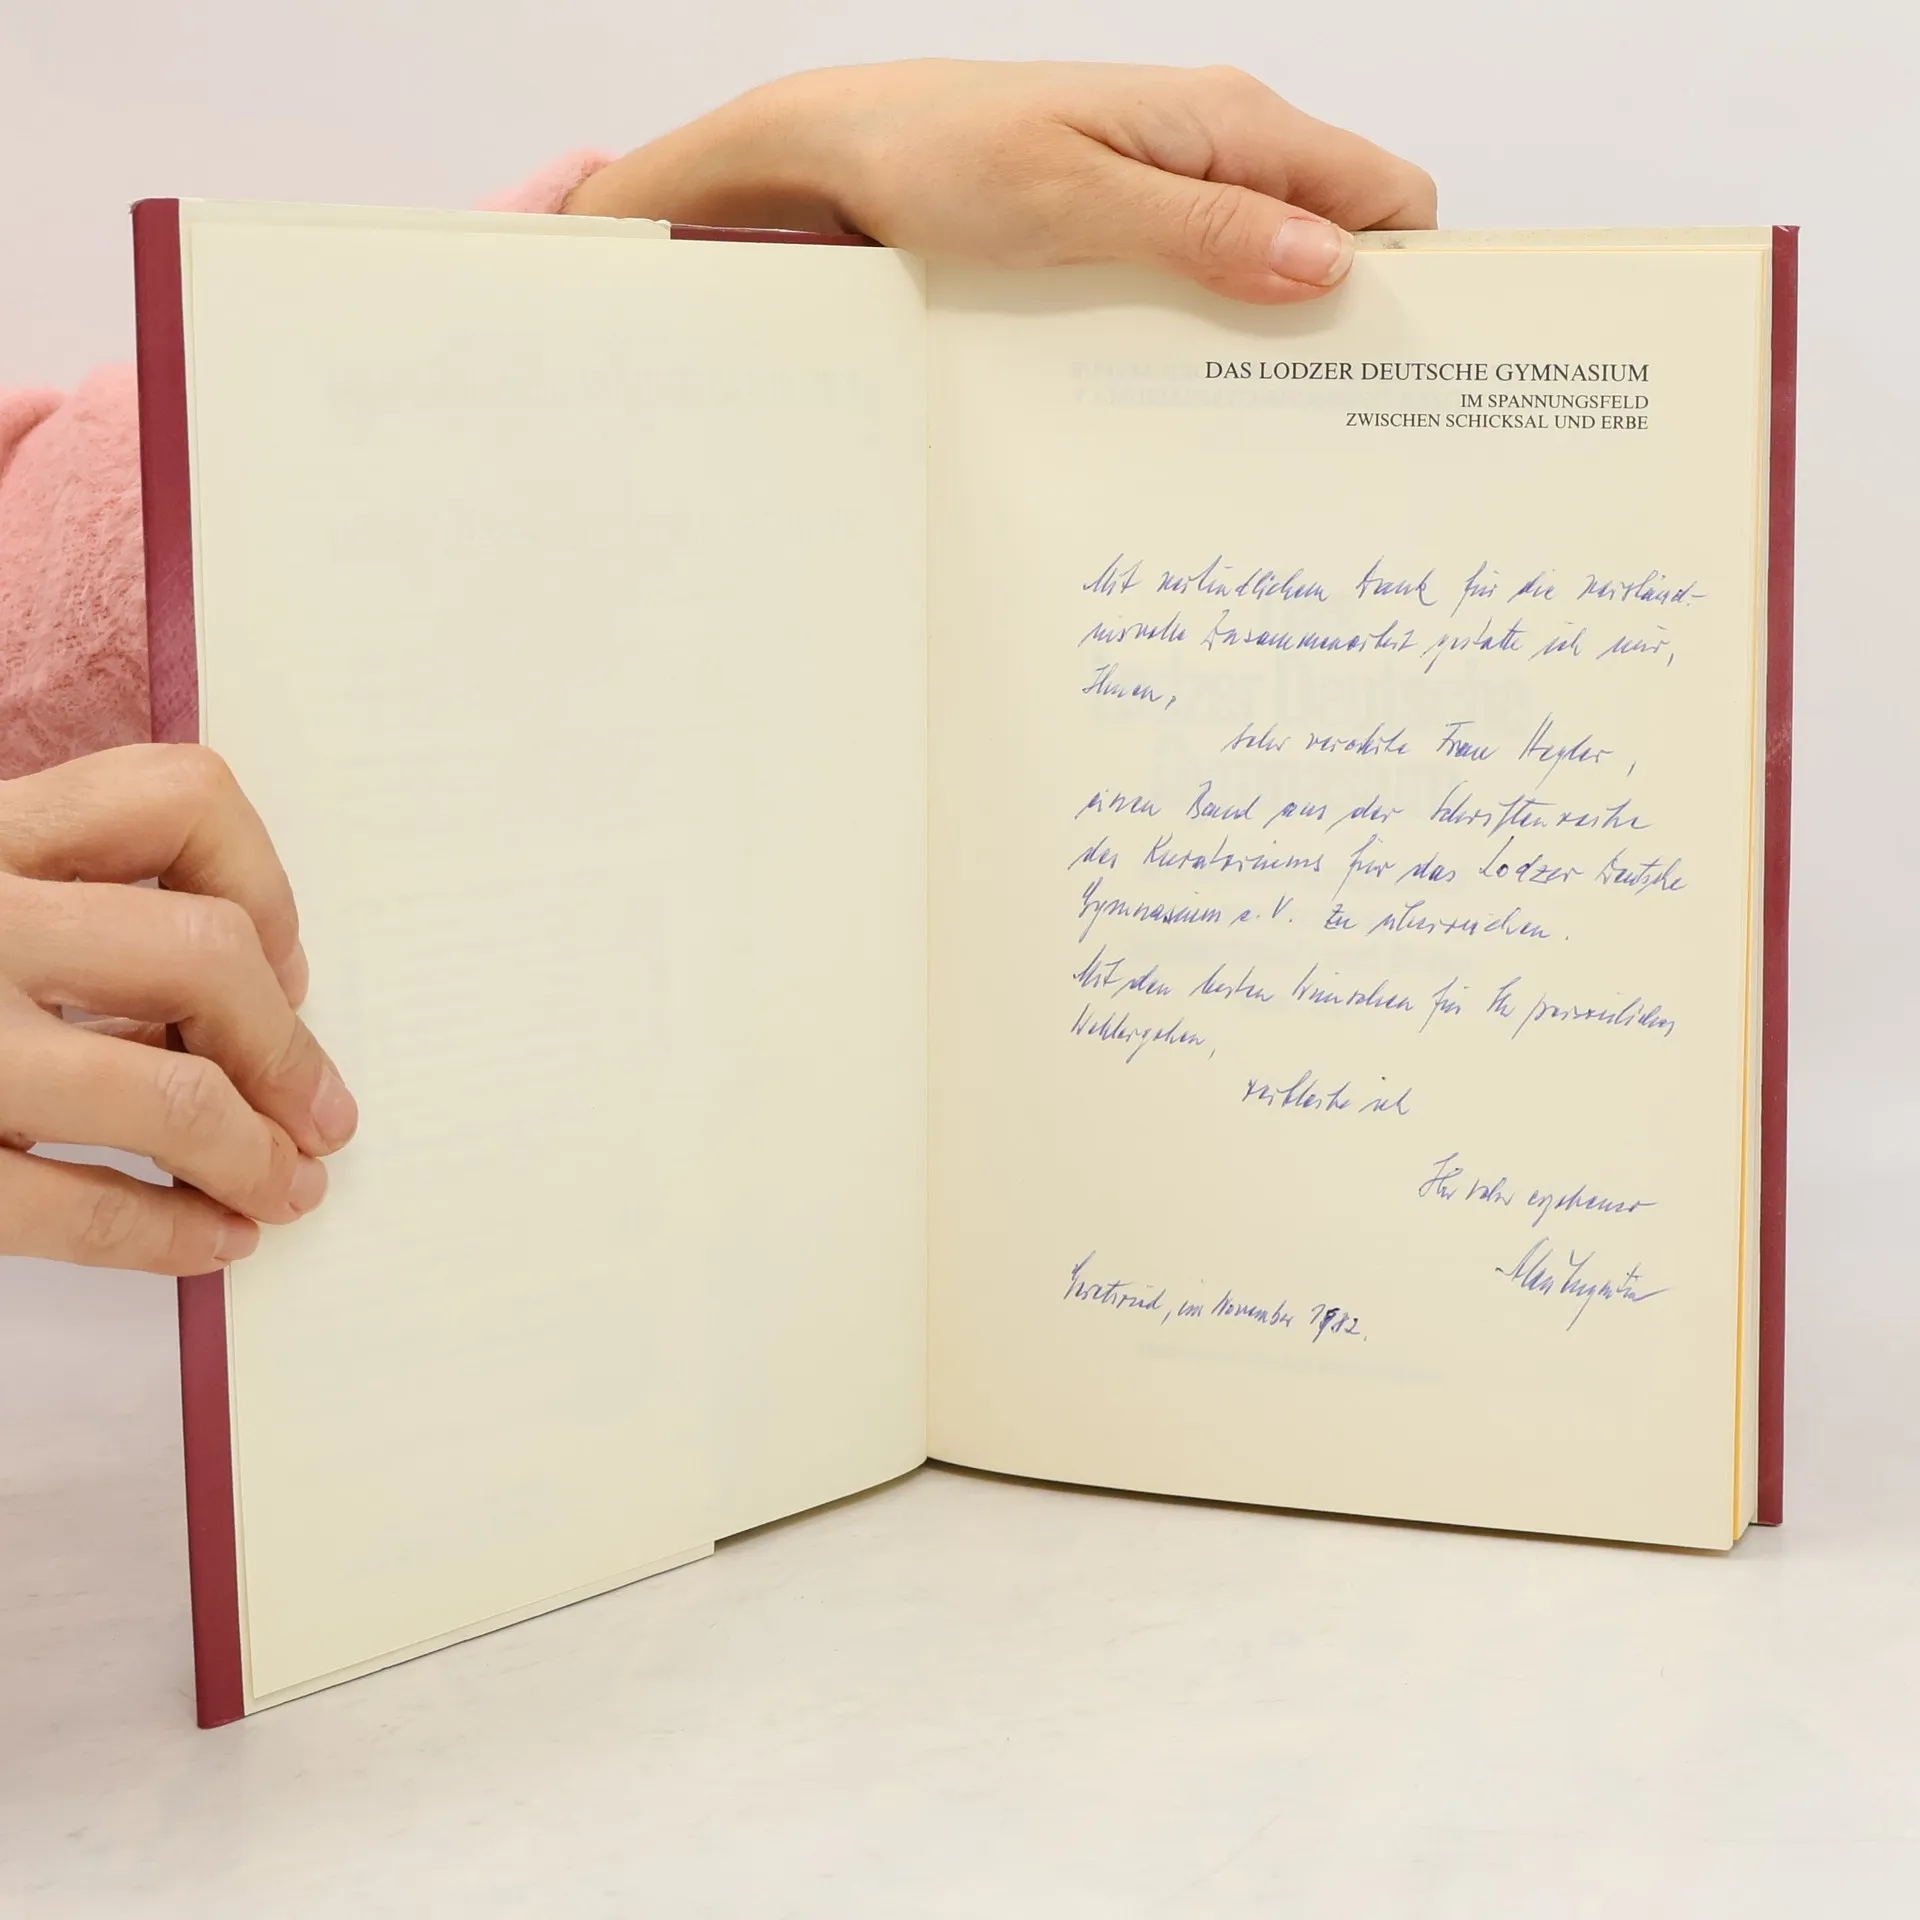 DAS LODZER DEUTSCHE GYMNASIUM
IM SPANNUNGSFELD
ZWISCHEN SCHICKSAL UND ERBE
Mit verbindlichem Dank für die verständ-
nisvolle Zusammenarbeit gestatte ich mir,
Ihnen,
sehr verehrte Frau Hegler,
einen Band aus der Schriftenreihe
des Kuratoriums für das Lodzer Deutsche
Gymnasium e. V. zu überreichen.
Mit den besten Wünschen für Ihr persönliches
Wohlergehen,
verbleibe ich
Ihr sehr ergebener
Geretsried, im November 1982.